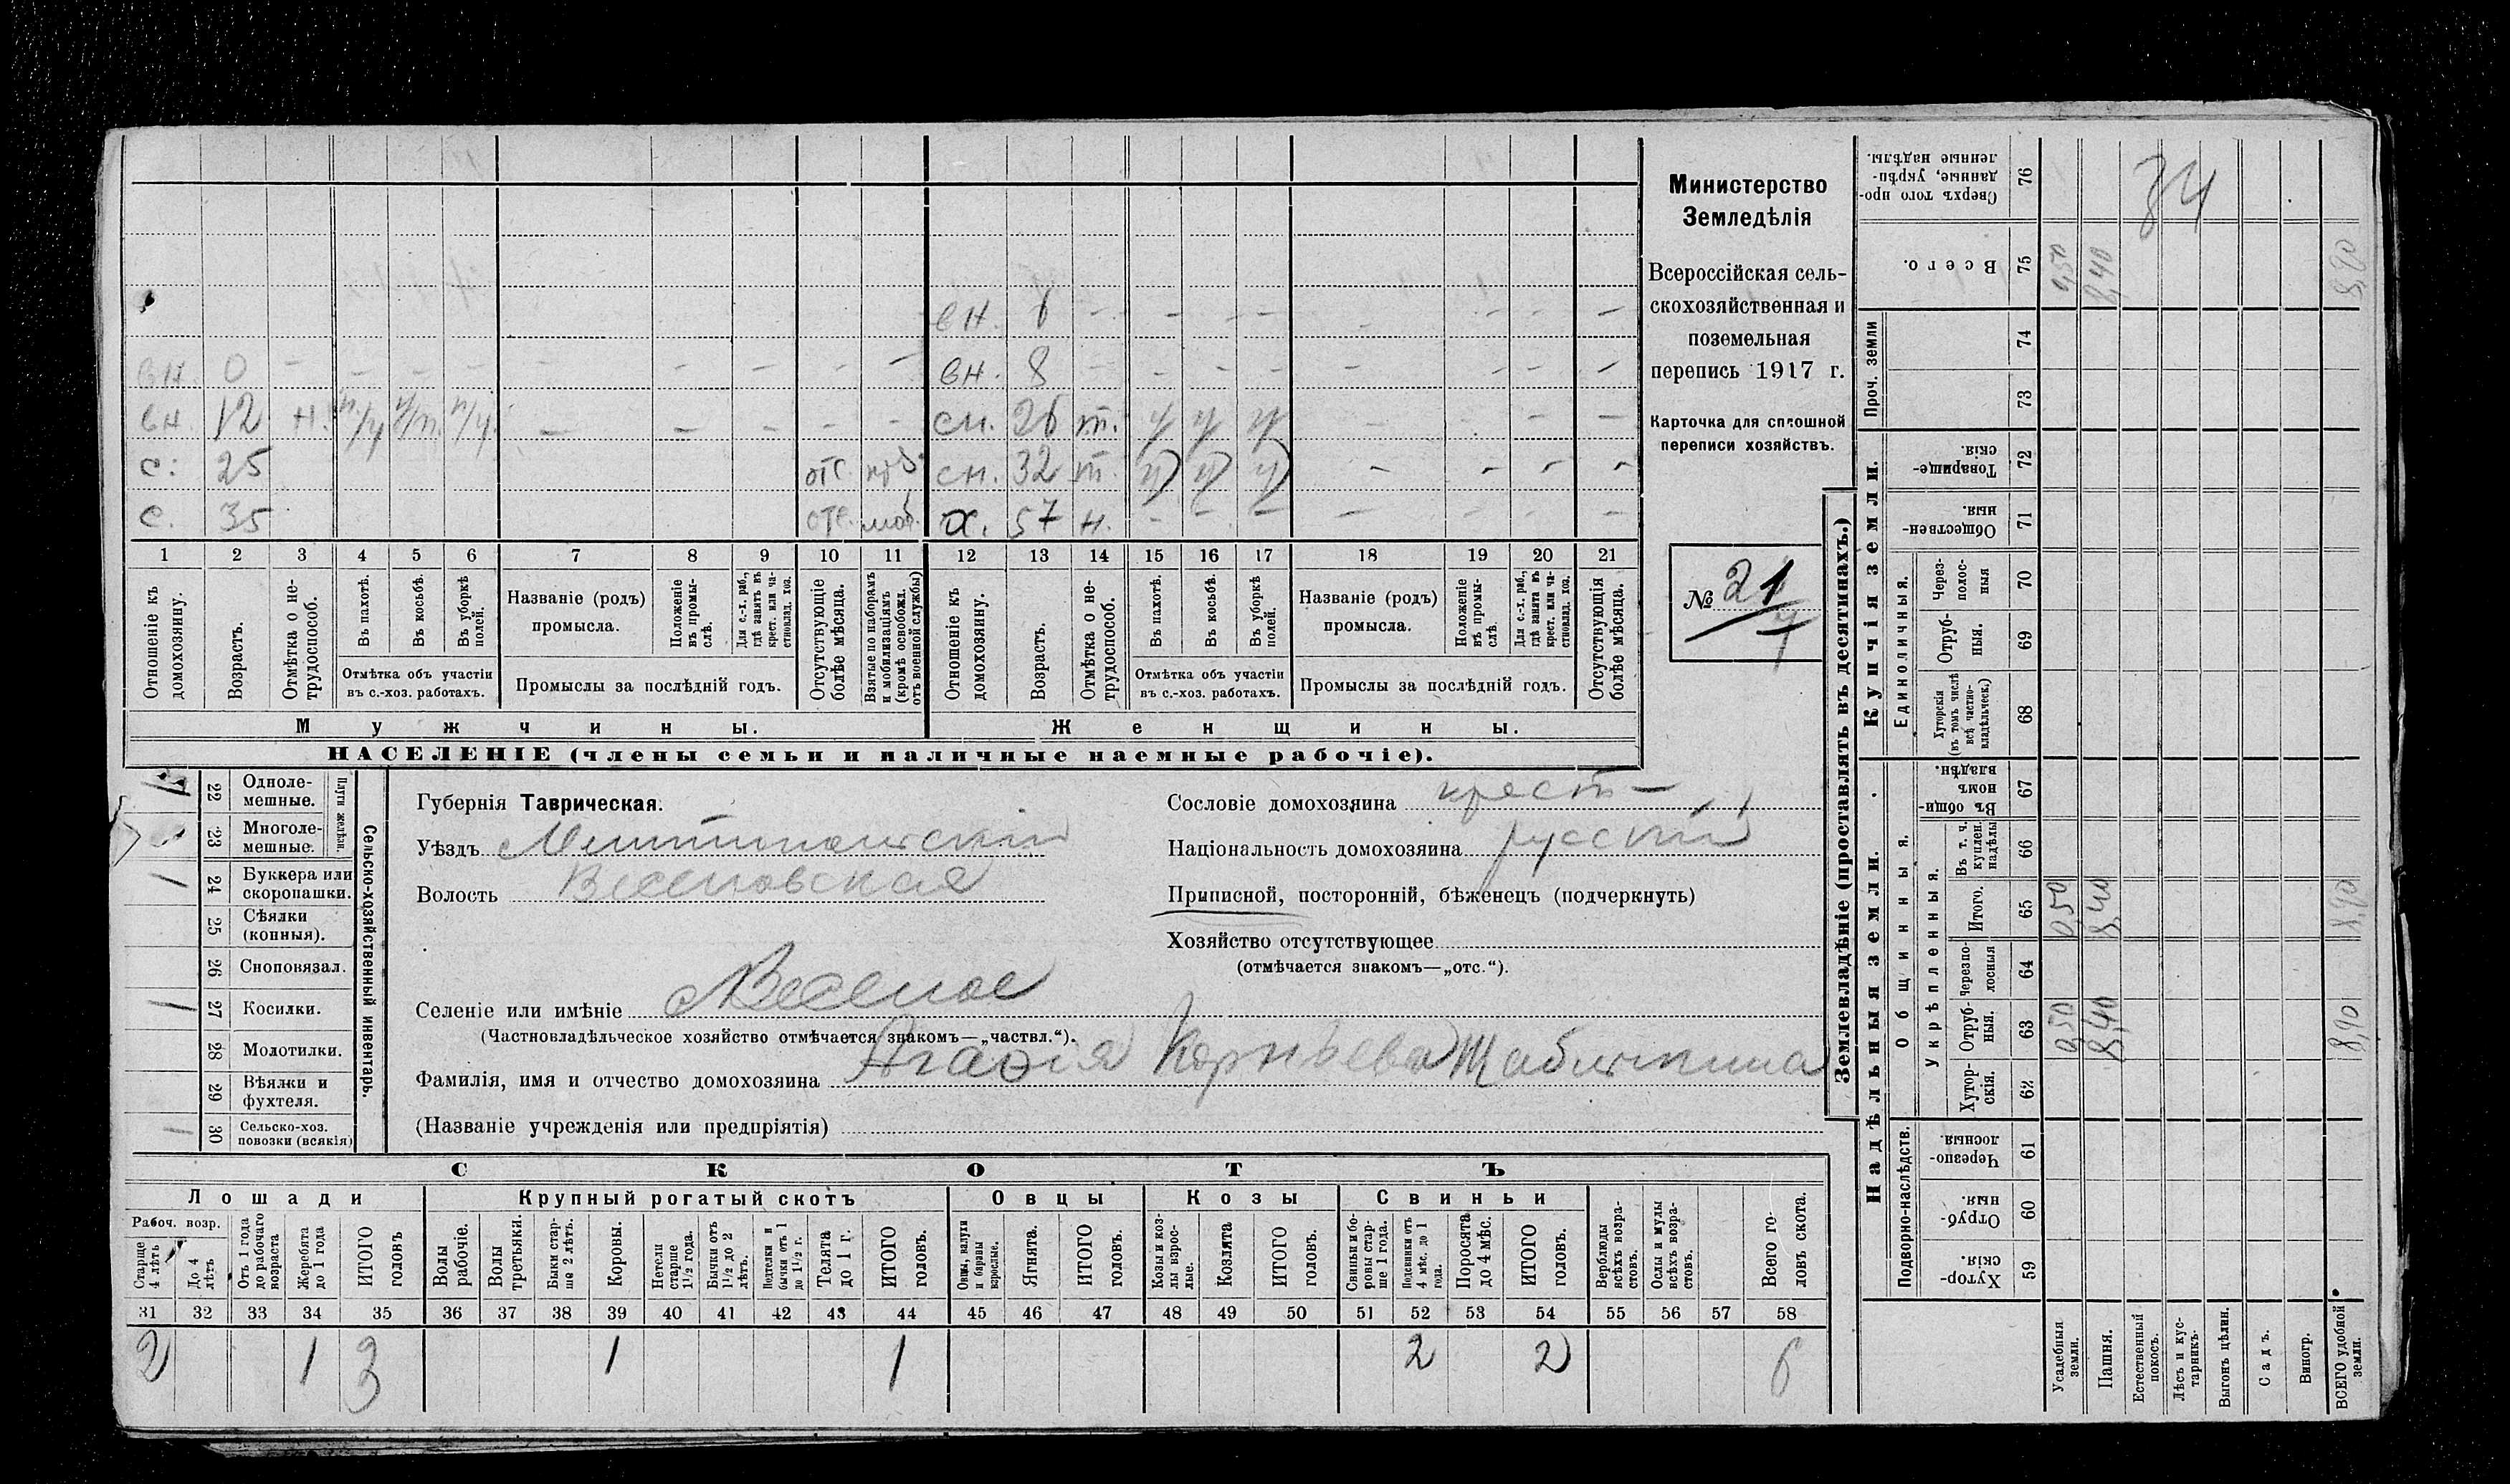 Министерство
Земледѣлія
Всероссійская сель-
скохозяйственная и
поземельная
перепись 1917 г.
Карточка для сплошной
переписи хозяйствъ.
№ 21
вн. 6 — — — — — — — —
вн. 0 — — — — — — — — — вн. 8 — — — — — — — —
вн. 12 н. — — — — — сн. 26 т. у у у — — — —
с. 25 отс. моб. сн. 32 т. у у у — — — —
с. 35 отс. моб. х. 57 н. — — — — — — —
1 2 3 4 5 6 7 8 9 10 11 12 13 14 15 16 17 18 19 20 21
Отношеніе къ домохозяину.
Возрастъ.
Отмѣтка о не-трудоспособ.
Въ пахотѣ.
Въ косьбѣ.
Въ уборкѣ полей.
Отмѣтка объ участіи
въ с.-хоз. работахъ.
Названіе (родъ)
промысла.
Положеніе въ промы-слѣ.
Для с.-х. раб., гдѣ занятъ въ крест. или ча-стновлад. хоз.
Промыслы за послѣдній годъ.
Отсутствующіе болѣе мѣсяца.
Взятые по наборамъ и мобилизаціямъ (кромѣ освобожд. отъ военной службы)
Отношеніе къ домохозяину.
Возрастъ.
Отмѣтка о не-трудоспособ.
Въ пахотѣ.
Въ косьбѣ.
Въ уборкѣ полей.
Отмѣтка объ участіи
въ с.-хоз. работахъ.
Названіе (родъ)
промысла.
Положеніе въ промы-слѣ.
Для с.-х. раб., гдѣ занята въ крест. или ча-стновлад. хоз.
Промыслы за послѣдній годъ.
Отсутствующія болѣе мѣсяца.
Мужчины. Женщины.
НАСЕЛЕНІЕ (члены семьи и наличные наемные рабочіе).
22 Одноле-мешные.
23 Многоле-мешные.
Плуги желѣзн.
24 Буккера или скоропашки.
25 Сѣялки (конныя).
26 Сноповязал.
27 Косилки.
28 Молотилки.
29 Вѣялки и фухтеля.
30 Сельско-хоз. повозки (всякія)
Сельско-хозяйственный инвентарь.
Губернія Таврическая.
Уѣздъ Мелитопольскій
Волость Веселовская
Селеніе или имѣніе Веселое
(Частновладѣльческое хозяйство отмѣчается знакомъ—„частвл.“).
Сословіе домохозяина крест—
Національность домохозяина русскій
Приписной, посторонній, бѣженецъ (подчеркнуть)
Хозяйство отсутствующее
(отмѣчается знакомъ—„отс.“).
Фамилія, имя и отчество домохозяина Агафія Корнѣева
(Названіе учрежденія или предпріятія)
СКОТЪ
Лошади Крупный рогатый скотъ Овцы Козы Свиньи
Рабоч. возр.
Старше 4 лѣтъ
До 4 лѣтъ
Отъ 1 года до рабочаго возраста
Жеребята до 1 года
ИТОГО головъ
Волы рабочіе.
Волы третьяки.
Быки стар-ше 2 лѣтъ.
Коровы.
Нетели старше 1½ года.
Бычки отъ 1½ до 2 лѣтъ.
Подтелки и бычки отъ 1 до 1½ г.
Телята до 1 г.
ИТОГО головъ.
Овцы, валухи и бараны взрослые.
Ягнята.
ИТОГО головъ.
Козы и коз-лы взрос-лые.
Козлята
ИТОГО головъ.
Свиньи и бо-ровы стар-ше 1 года.
Подсвинки отъ 4 мѣс. до 1 года.
Поросята до 4 мѣс.
ИТОГО головъ.
Верблюды всѣхъ возра-стовъ.
Ослы и мулы всѣхъ возра-стовъ.
Всего го-ловъ скота.
31 32 33 34 35 36 37 38 39 40 41 42 43 44 45 46 47 48 49 50 51 52 53 54 55 56 57 58
2 1 3 1 1 2 2 6
Землевладѣніе (проставлять въ десятинахъ.)
Надѣльныя земли.
Купчія земли.
Проч. земли
Подворно-наслѣдств.
Общинныя.
Укрѣпленныя.
Единоличныя.
Сверхъ того про-данные, укрѣп-ленные надѣлы. 76
34
Всего. 75 0,50 8,40 8,90
74
73
Товарище-скія 72
Обществен-ныя. 71
Через-полос-ныя 70
Отруб-ныя. 69
Хуторскія (въ томъ числѣ всѣ частно-владѣльческ.) 68
Въ общин-номъ владѣн. 67
Въ т. ч. куплен. надѣлы 66
Итого. 65 0,50 8,40 8,90
Черезпо-лосныя 64
Отруб-ныя. 63 0,50 8,40 8,90
Хутор-скія. 62
Черезпо-лосныя. 61
Отруб-ныя. 60
Хутор-скія. 59
Усадебныя земли.
Пашня.
Естественный покосъ.
Лѣсъ и кус-тарникъ.
Выгонъ цѣлин.
Садъ.
Виногр.
ВСЕГО удобной земли.